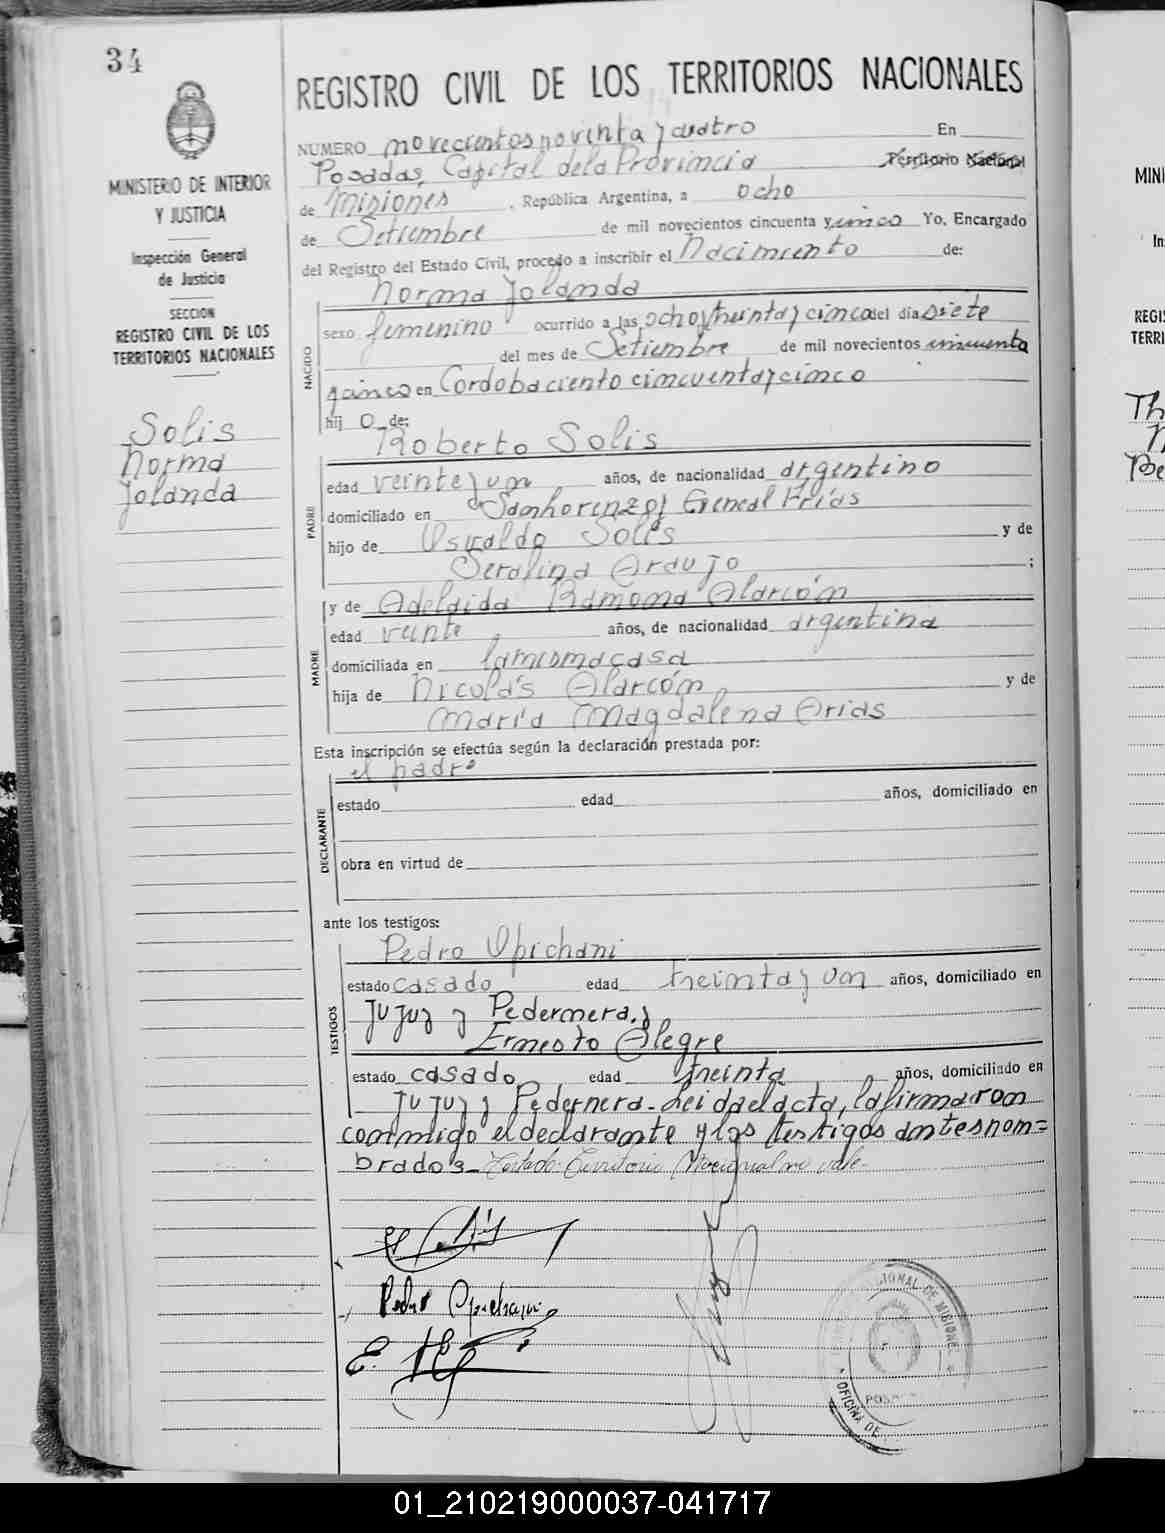 34
REGISTRO CIVIL DE LOS TERRITORIOS NACIONALES
MINISTERIO DE INTERIOR
Y JUSTICIA
Inspección General
de Justicia
SECCION
REGISTRO CIVIL DE LOS
TERRITORIOS NACIONALES
Solis
Norma
Jolanda
NUMERO novecientos noventa y cuatro En
Posadas, Capital de la Provincia Territorio Nacional
de Misiones, República Argentina, a ocho
de Setiembre de mil novecientos cincuenta y cinco Yo, Encargado
del Registro del Estado Civil, procedo a inscribir el Nacimiento de:
Norma Jolanda
NACIDO
sexo femenino ocurrido a las ocho y treinta y cinco del día siete
del mes de Setiembre de mil novecientos cincuenta
y cinco en Cordoba ciento cincuenta y cinco
hij o de:
Roberto Solis
PADRE
edad veinte y un años, de nacionalidad argentino
domiciliado en San Lorenzo y General Frias
hijo de Osvaldo Solis y de
Serafina Araujo ;
y de Adelaida Ramona Alarcón
MADRE
edad veinte años, de nacionalidad argentina
domiciliada en la misma casa
hija de Nicolás Alarcón y de
María Magdalena Arias
Esta inscripción se efectúa según la declaración prestada por:
el padre
DECLARANTE
estado edad años, domiciliado en
obra en virtud de
ante los testigos:
Pedro Opichani
TESTIGOS
estado casado edad treinta y un años, domiciliado en
Jujuy y Pedernera y
Ernesto Alegre
estado casado edad treinta años, domiciliado en
Jujuy y Pedernera - Leida el acta, la firmaron
conmigo el declarante y los testigos antes nom=
brados - Testado: Territorio Nacional no vale-
Pedro Opichani
POSA
OFICINA DE
01_210219000037-041717
MINI
In
REGIS
TERRI
Th
Be